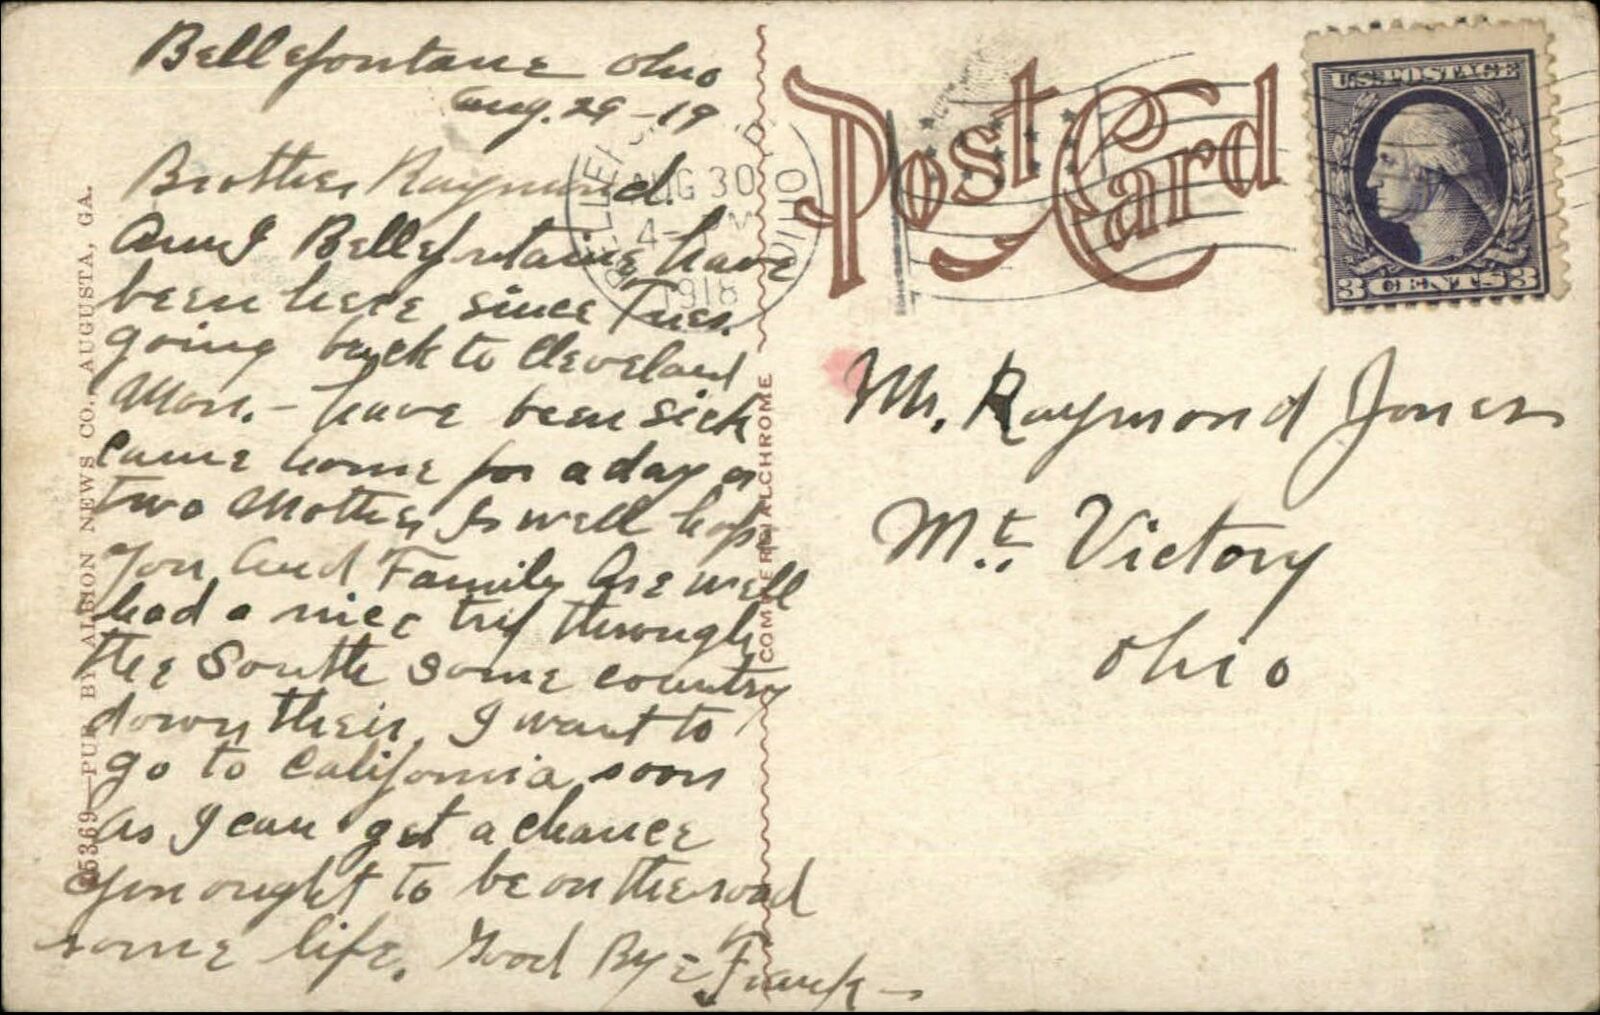 Bellefontane Ohio
Aug. 29 - 19
Brother Raymond.
Am I Bellefntaine have
been here since Tues.
going back to Cleveland
Mon. - have been sick
came home for a day or
two Mother Is well hope
You and Family Are well
had a nice trip through
the South some country
down their, I want to
go to California soon
as I can get a chance
you ought to be on the road
some life. Good By e Frank -
25369—PUB. BY ALBION NEWS CO., AUGUSTA, GA.
COMMERCIALCHROME
Post Card
AUG 30
4-
M
1918
OHIO
U.S. POSTAGE
3 CENTS 3
Mr. Raymond Jones
Mt. Victory
Ohio